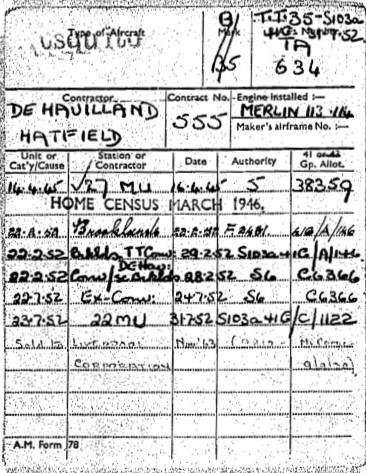 Type of Aircraft
Mark
T.T.35-S103a
TA
634
B
35
Contractor
DE HAVILLAND
HATFIELD
Contract No.
555
Engine Installed :—
MERLIN 113 114
Maker's airframe No. :—
Unit or Cat'y/Cause
Station or Contractor
Date
Authority
41
Gp. Allot.
14.4.45 27 MU 16.4.45 S 38359
HOME CENSUS MARCH 1946.
Brooklands
22-2-52 Bklds. TT Conv 29-2-52 S103a 41G/A/146
DE Hav.
22.2.52 Conv 28.2.52 S6 C6366
22-7-52 Ex-Conv. 24-7-52 S6 C6366
23-7-52 22MU 31-7-52 S103a 41G/C/1122
Sold to LIVERPOOL Nov '63
CORPORATION
A.M. Form 78